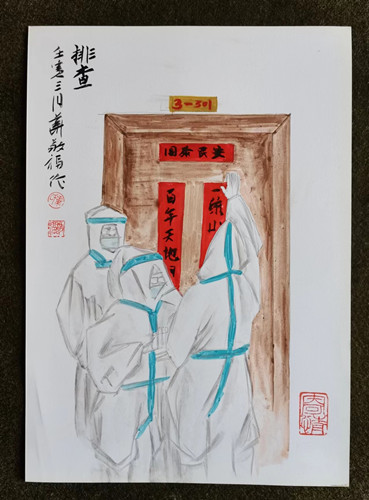 排查
壬寅三月
作
3-301
国泰民安
百年天地
一统山